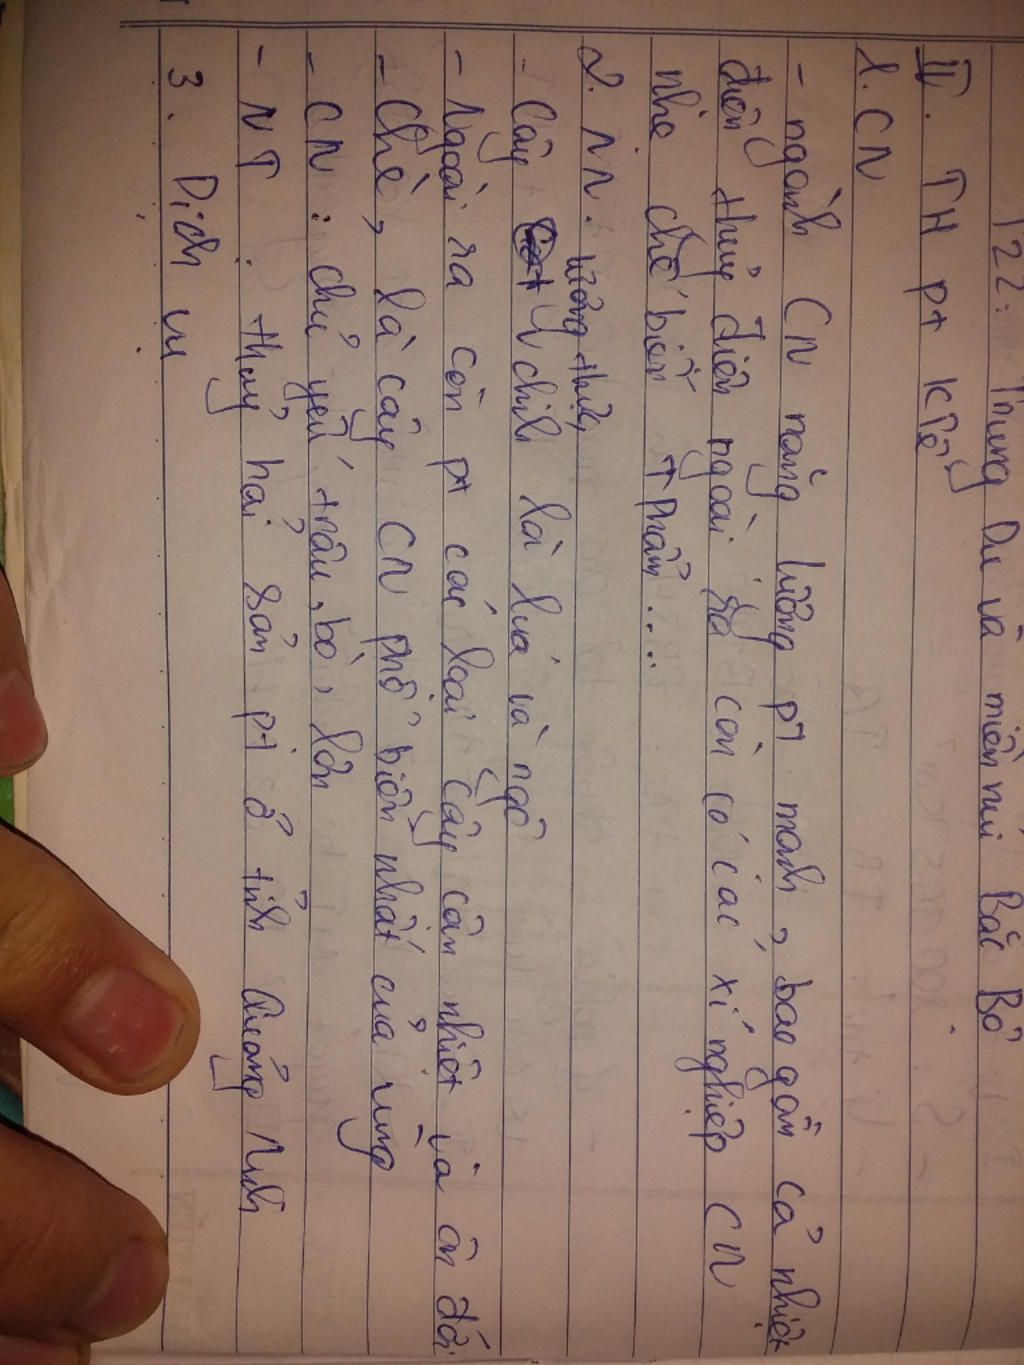 T22: Trung Du và miền núi Bắc Bộ
III. TH pt KTế
1. CN
- ngành CN năng lượng pt mạnh, bao gồm cả nhiệt
điện thủy điện ngoài ra còn có các xí nghiệp CN
nhẹ chế biến T phẩm...
2. NN.
lương thực
- Cây chính là lúa và ngô
- Ngoài ra còn pt các loại cây cận nhiệt và ôn đới
- Chè, là cây CN phổ biến nhất của vùng
- CN : chủ yếu trâu, bò, lợn
- NT : thủy hải sản pt ở tỉnh Quảng Ninh
3. Dịch vụ